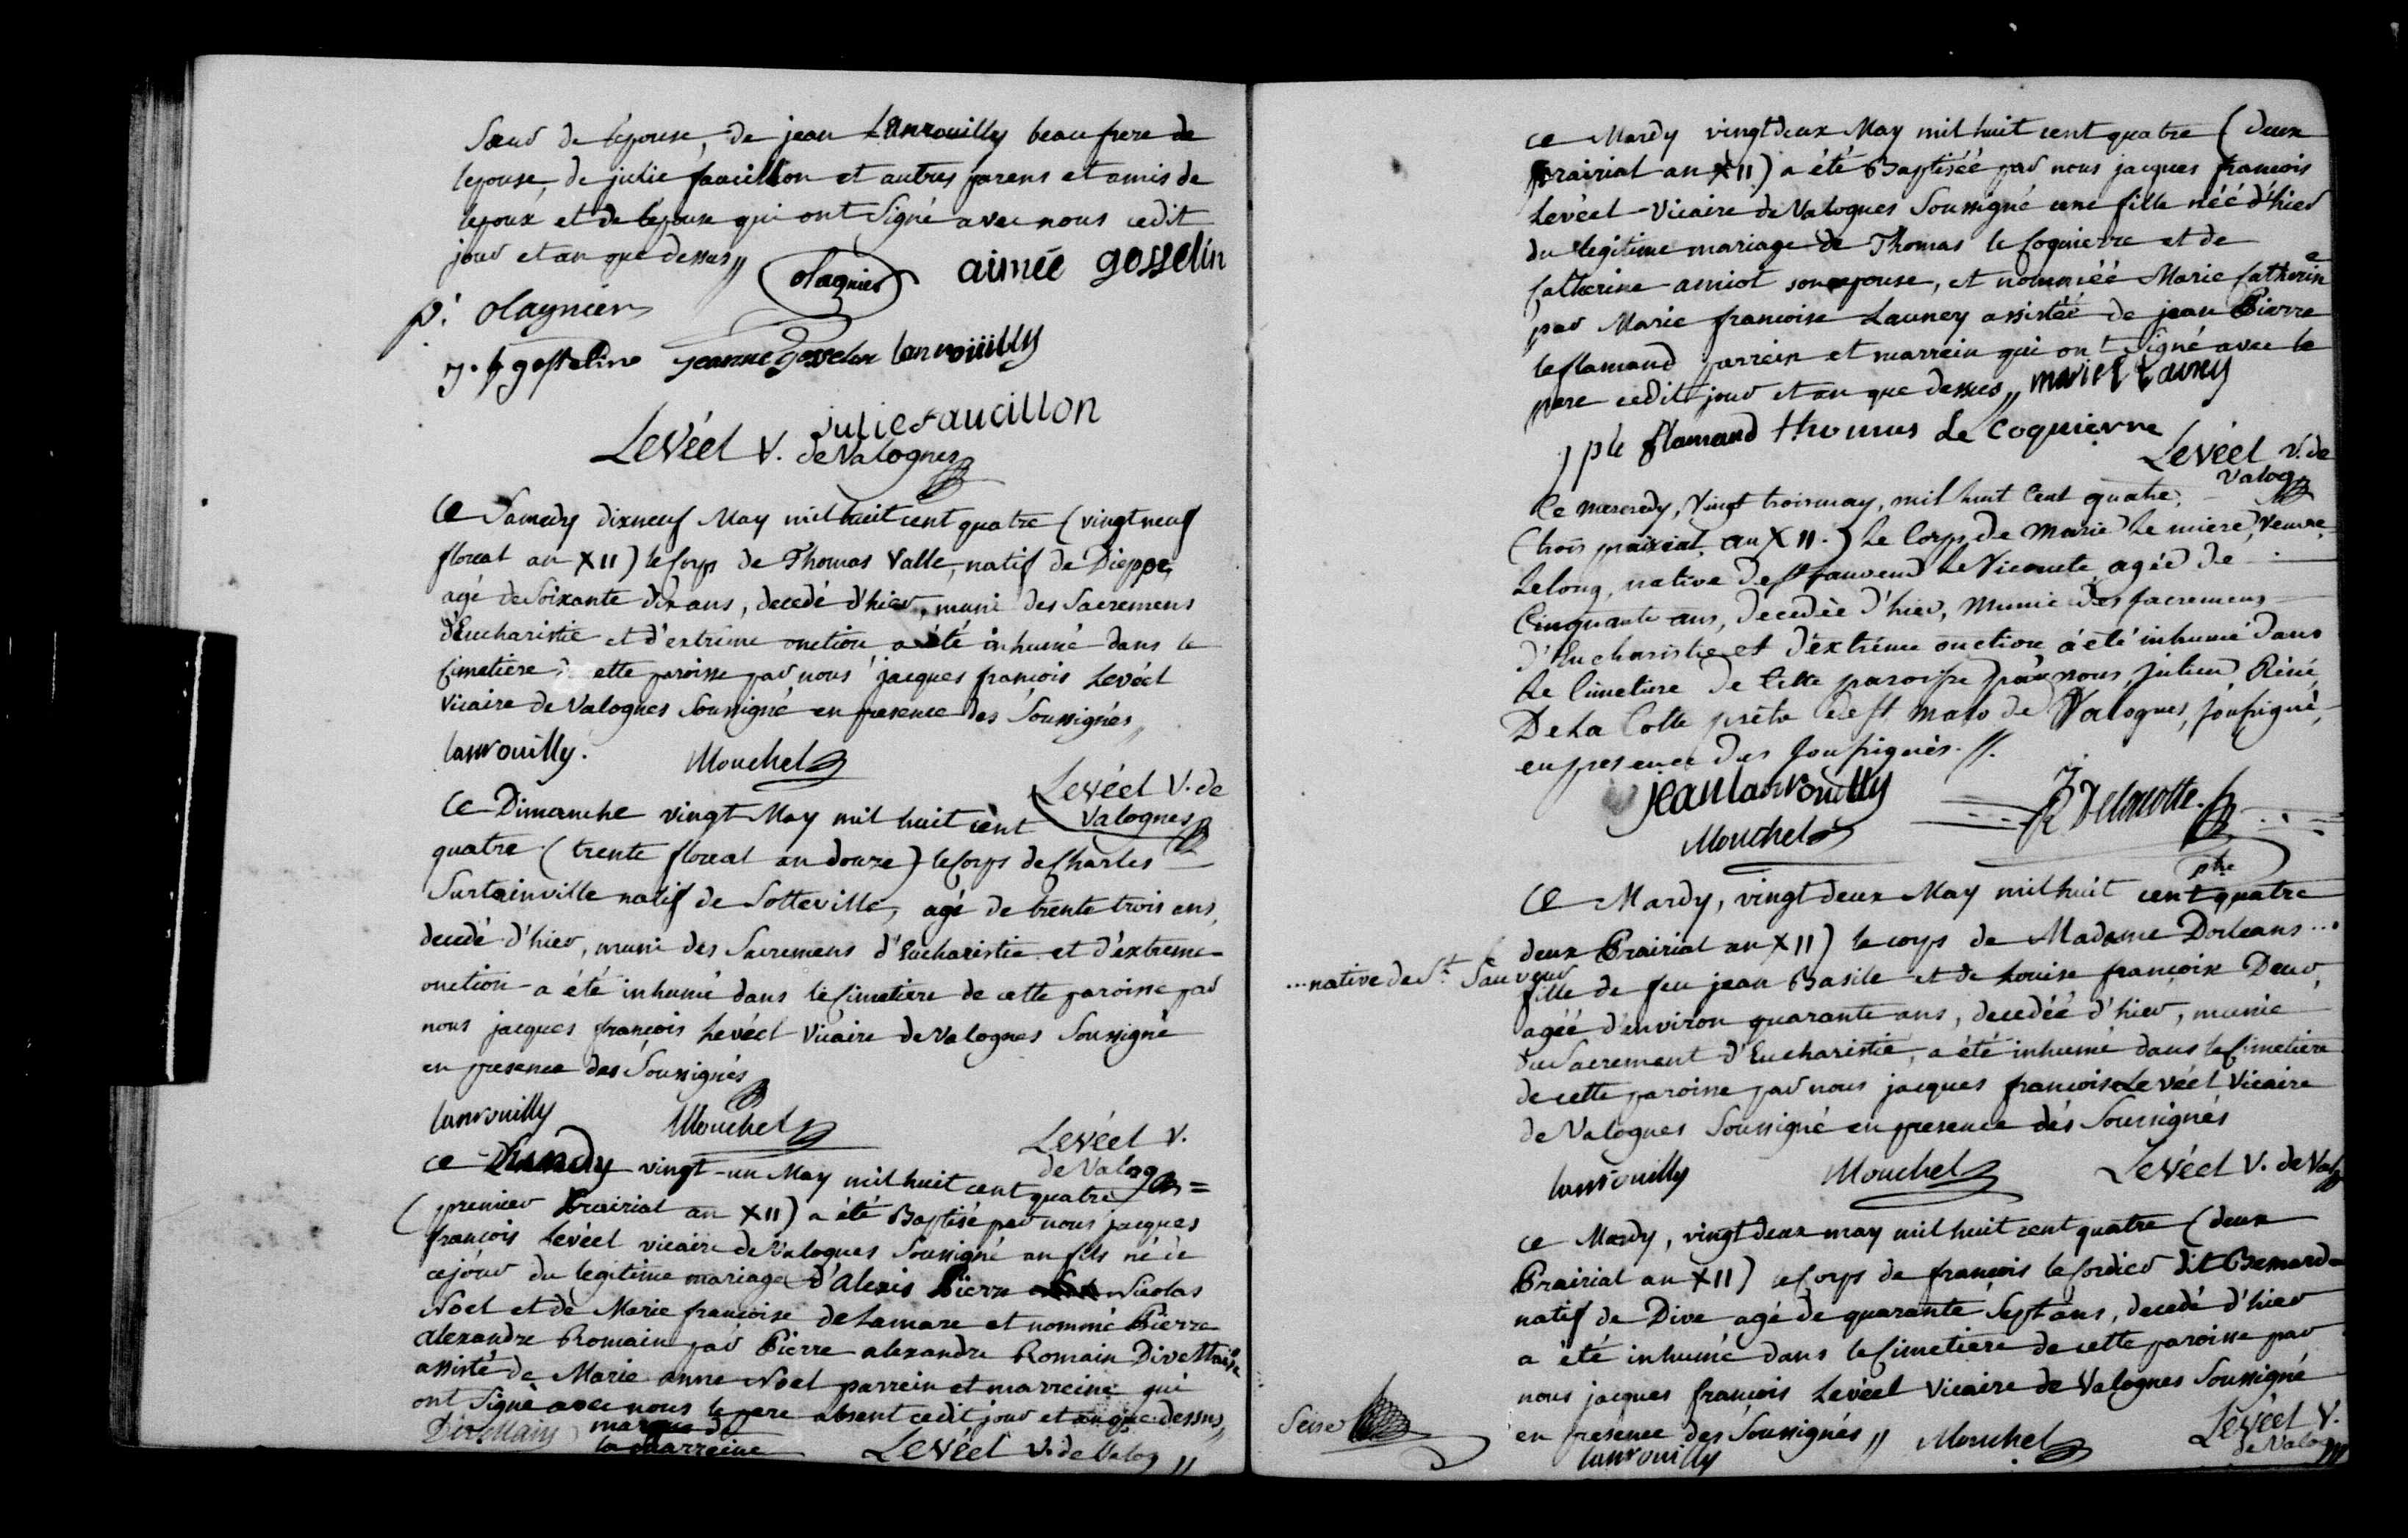 Sœur de l'epouse, de jean Lanrouilly beau frere de
lepouse, de julie faucillon et autres parens et amis de
lepoux et de lepouse qui ont Signé avec nous cedit
jour et an que dessus,, olagnier aimée gosselin
p. olagnier
j. f gosseline jeanne gosselin lanrouilly
julie faucillon
Levéel V. de Valognes
Ce Samedy dixneuf May mil huit cent quatre (vingt neuf
floreal an XII) le Corps de Thomas Valle, natif de Dieppe,
agé de Soixante dix ans, decedé d'hier, muni des Sacremens
d'Eucharistie et d'extrême onction a été inhumé dans le
Cimetiere de cette paroisse par nous jacques françois Levéel
Vicaire de Valognes Soussigné en presence des Soussignés,,
lanrouilly. Mouchel
Levéel V. de
Valognes
Ce Dimanche vingt May mil huit cent
quatre (trente floreal an douze) le Corps de Charles
Surtainville natif de Sotteville, agé de trente trois ans,
decedé d'hier, muni des Sacremens d'Eucharistie et d'extreme-
onction a été inhumé dans le Cimetiere de cette paroisse par
nous jacques françois Levéel Vicaire de Valognes Soussigné
en presence des Soussignés
lanrouilly Mouchel Levéel V.
de Valog
ce Lundy vingt-un May mil huit cent quatre
(premier Prairial an XII) a été Baptisé par nous jacques
françois Levéel vicaire de Valognes Soussigné un fils né de
cejour du legitime mariage d'Alexis Pierre Nicolas
Noel et de Marie françoise delamare et nommé Pierre
alexandre Romain par Pierre alexandre Romain
assisté de Marie anne Noel parrein et marreine qui
ont Signé avec nous le pere absent cedit jour et an que dessus,,
marque de
la marreine Levéel V. de Valog,,
ce Mardy vingt deux May mil huit cent quatre (deux
Prairial an XII) a été Baptisée par nous jacques françois
Levéel Vicaire de Valognes Soussigné une fille née d'hier
du legitime mariage de Thomas le Coquierre et de
Catherine amiot son epouse, et nommée Marie Catherine
par Marie françoise Launey assistée de jean Pierre
le flamand parrein et marrein qui ont Signé avec le
pere cedit jour et an que dessus,, marie f launey
j p le flamand thomas Le Coquierre
Levéel V. de
Valog
Ce mercredy, Vingt trois may, mil huit Cent quatre,
(trois prairial, an XII.) Le Corps de Marie Le miere, Veuve,
Lelong, native de St Sauveur Le Vicomte agée de
Cinquante ans, decedée d'hier, Munie des sacremens
d'Eucharistie et d'extrême onction a été inhumé dans
Le Cimetiere de Cette paroisse par nous, julien Réné,
De La Cotte prêtre de St malo de Valognes, soussigné,
en presence des soussignés.//.
jean lanrouilly
Mouchel J R Delacotte
ptre
Ce Mardy, vingt deux May mil huit cent quatre
deux Prairial an XII) le corps de Madame Dorleans ...
...native de St. Sauveur
fille de feu jean Basile et de Louise françoise Deur,
agée d'environ quarante ans, decedée d'hier, munie
du Sacrement d'Eucharistie, a été inhumé dans le Cimetiere
de cette paroisse par nous jacques françois Levéel Vicaire
de Valognes Soussigné en presence des Soussignés
lanrouilly Mouchel Levéel V. de Valg
Ce Mardy, vingt deux may mil huit cent quatre (deux
Prairial an XII) le Corps de françois le Cordier dit Bemard
natif de Dive agé de quarante Sept ans, decedé d'hier
a été inhumé dans le Cimetiere de cette paroisse par
nous jacques françois Levéel Vicaire de Valognes Soussigné
en presence des Soussignés,, Mouchel Levéel V.
lanrouilly de Valog